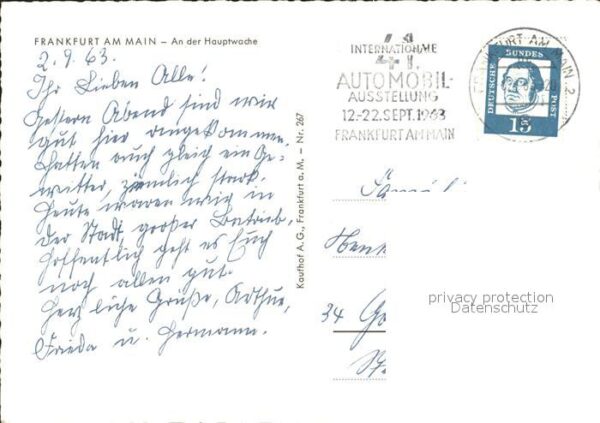 FRANKFURT AM MAIN – An der Hauptwache
2.9.63.
Ihr Lieben Alle!
Gestern Abend sind wir
gut hier angekommen.
hatten auch gleich ein Ge-
witter, ziemlich stark.
Heute waren wir in
der Stadt, großer Betrieb.
Hoffentlich geht es Euch
noch allen gut.
Herzliche Grüße, Arthur,
Frieda u. Hermann.
Kaufhof A.G., Frankfurt a. M. – Nr. 267
INTERNATIONALE
41.
AUTOMOBIL-
AUSSTELLUNG
12.-22. SEPT. 1963
FRANKFURT AM MAIN
FRANKFURT AM MAIN 2
DEUTSCHE BUNDES POST
15
Famil
34
privacy protection
Datenschutz